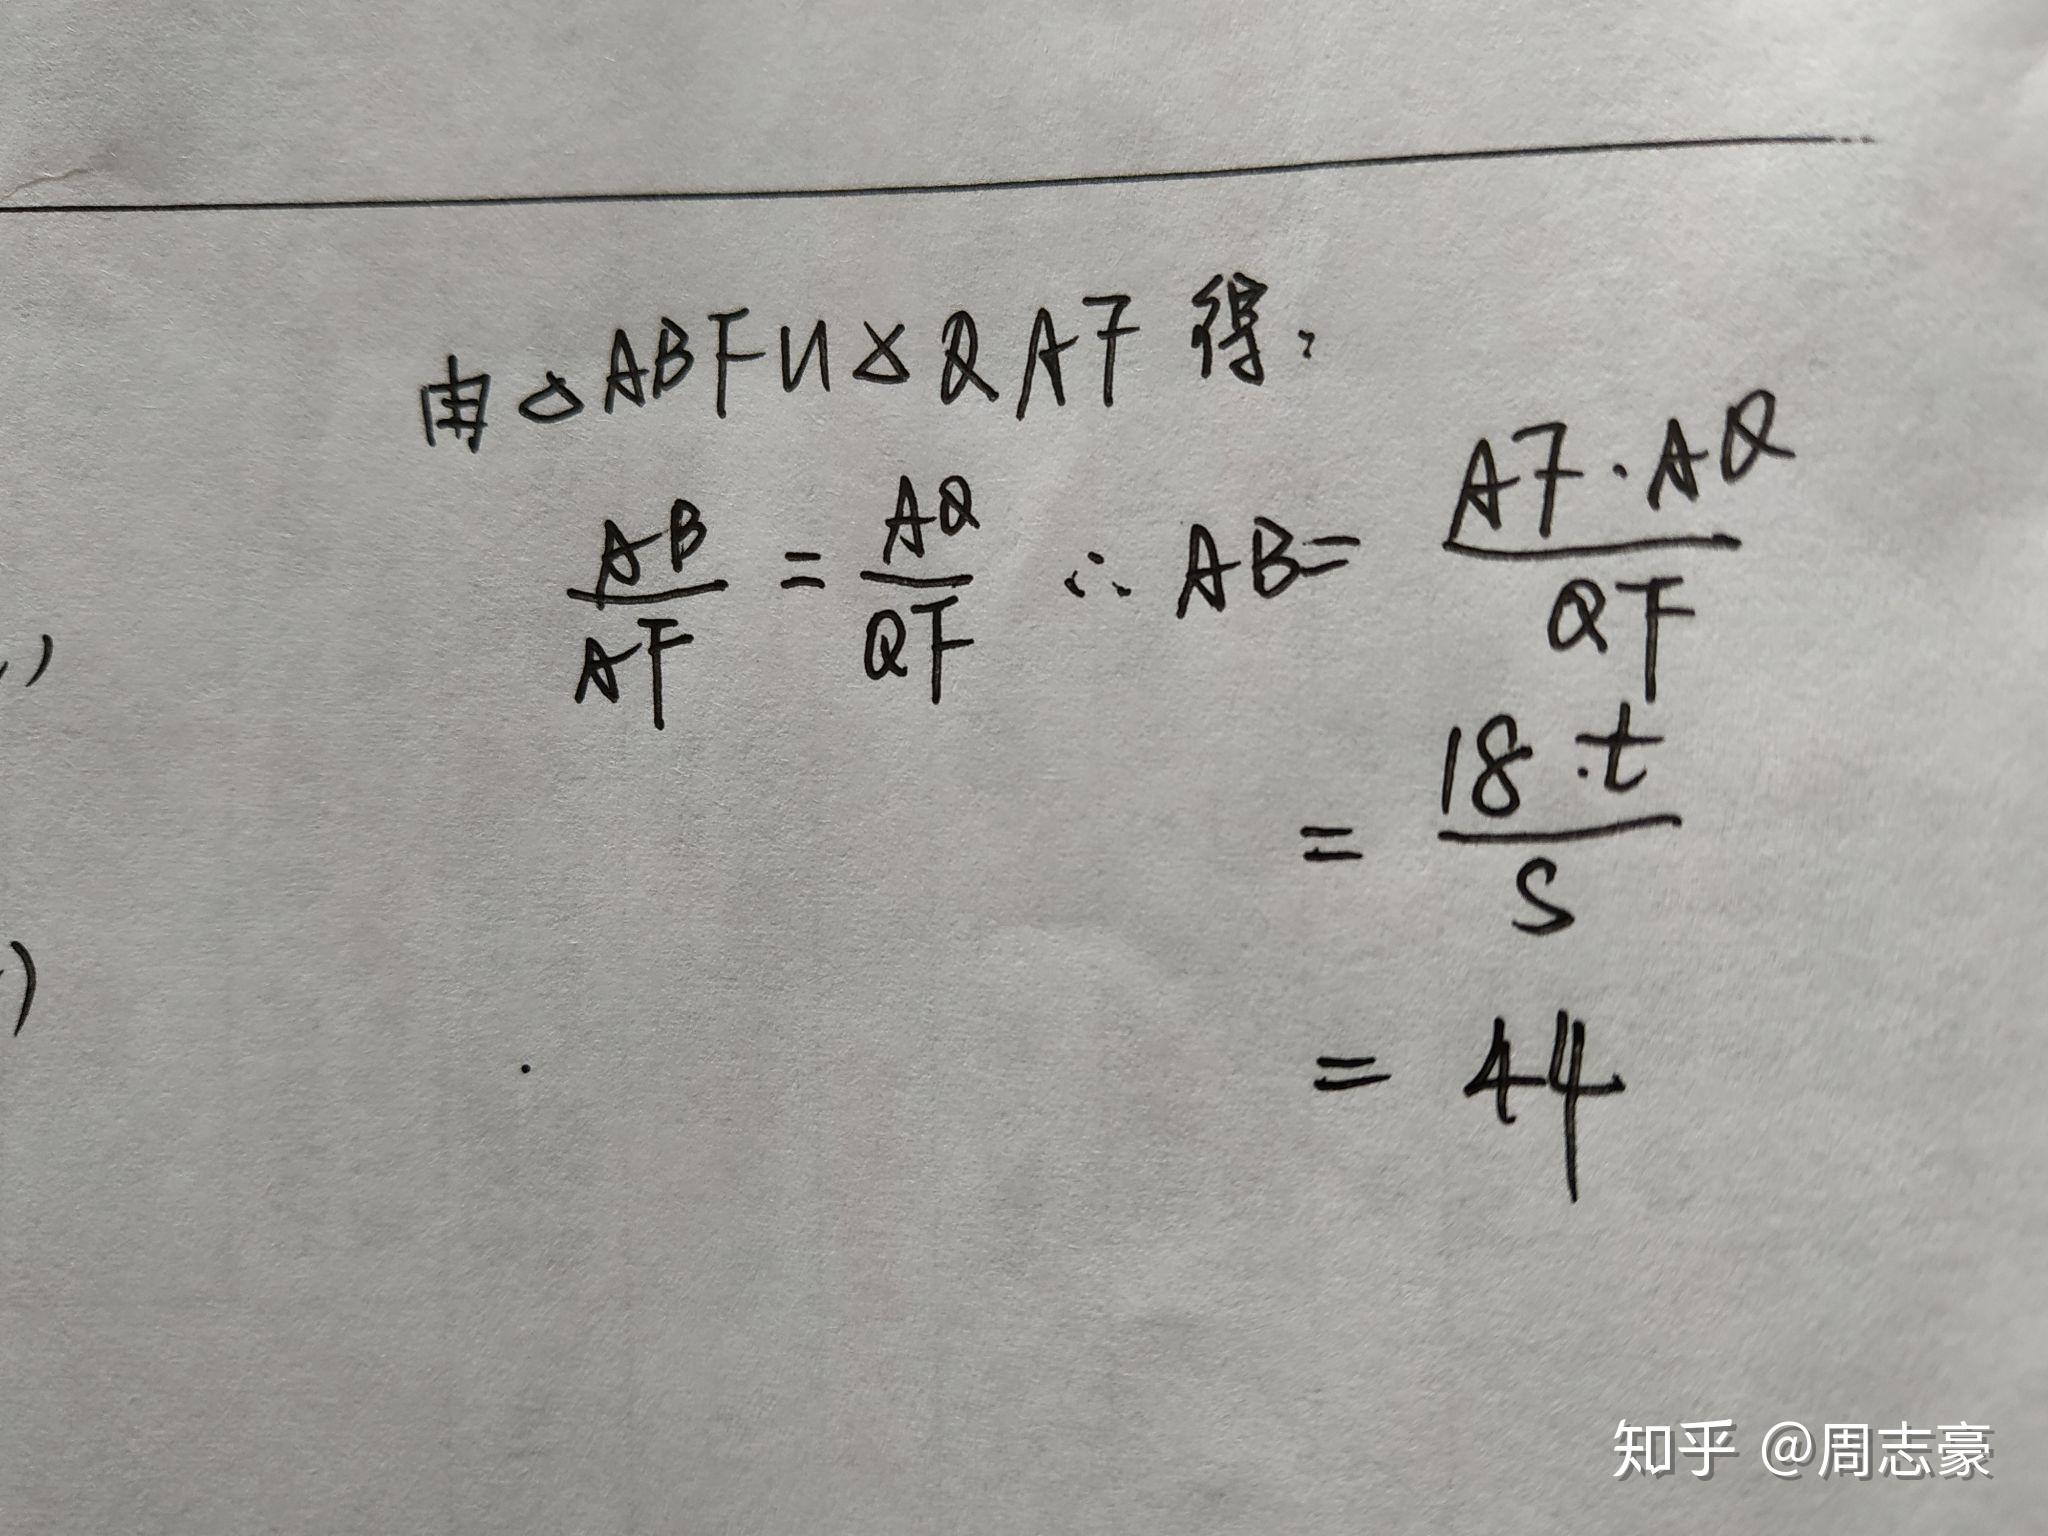 由△ABF∽△QAF得:
AB/AF = AQ/QF ∴ AB = AF·AQ/QF
= 18·t/S
= 44
,)
)
知乎 @周志豪